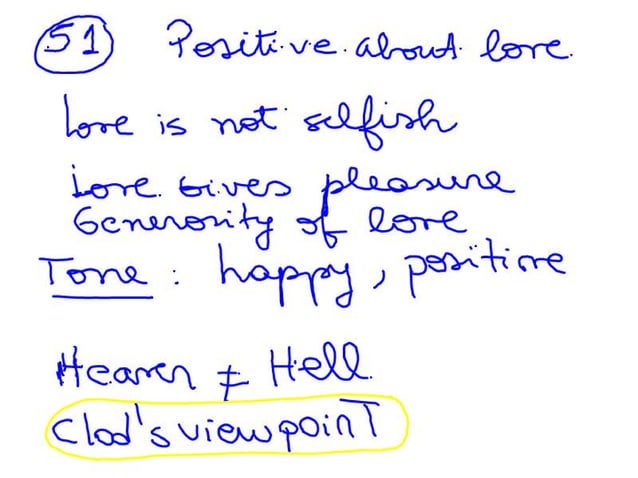 51 Positive about love.
Love is not selfish
Love Gives pleasure
Generosity of love
Tone : happy, positive
Heaven ≠ Hell
Clod's viewpoint